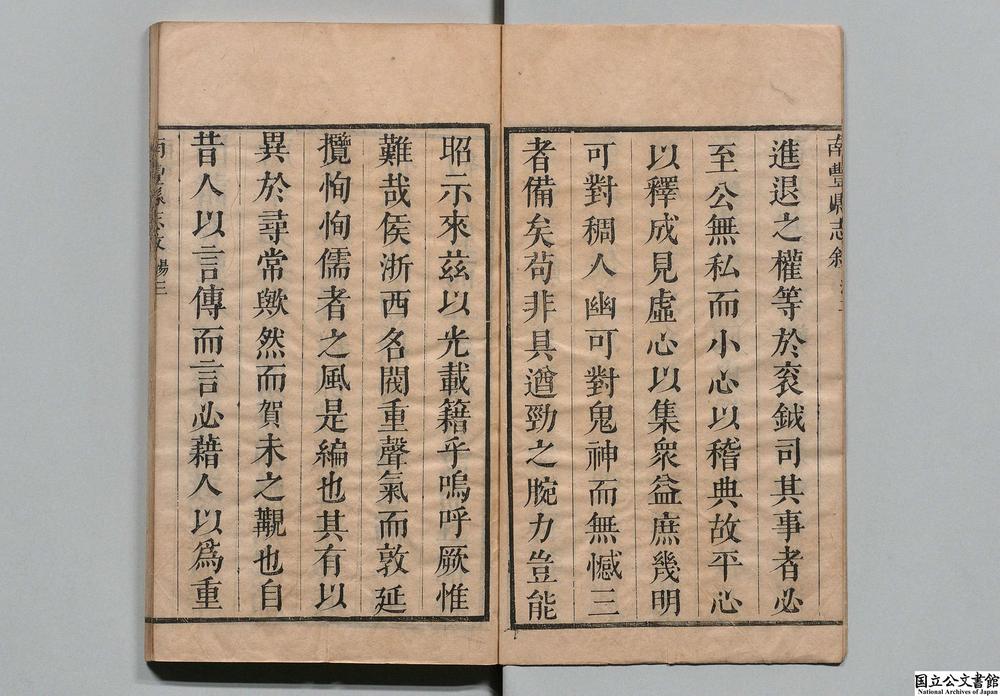 南豐縣志叙
進退之權等於袞鉞司其事者必
至公無私而小心以稽典故平心
以釋成見虛心以集衆益庶幾明
可對稠人幽可對鬼神而無憾三
者備矣茍非具遒勁之腕力豈能
昭示來茲以光載籍乎嗚呼厥惟
難哉侯浙西名閥重聲氣而敦延
攬恂恂儒者之風是編也其有以
異於尋常歟然而賀未之覯也自
昔人以言傳而言必藉人以爲重
南豐縣志 楊三
国立公文書館
National Archives of Japan